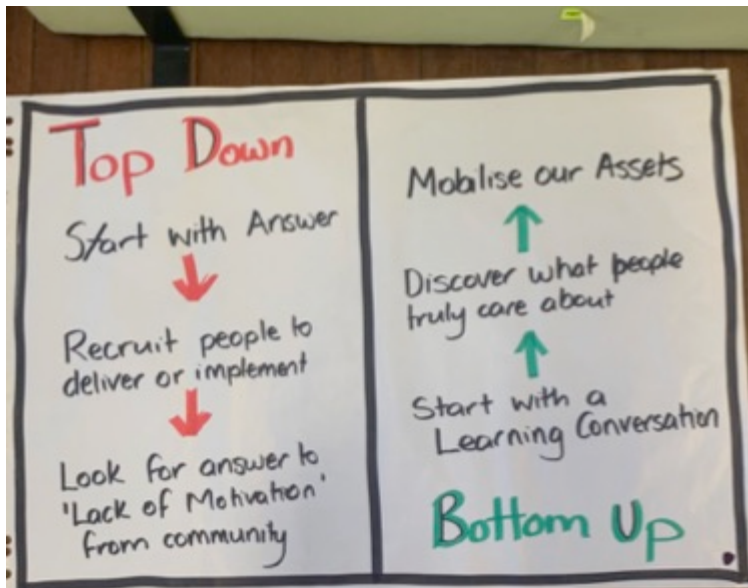 Top Down
Start with Answer
Recruit people to
deliver or implement
Look for answer to
'Lack of Motivation'
from community
Mobilise our Assets
Discover what people
truly care about
Start with a
Learning Conversation
Bottom Up